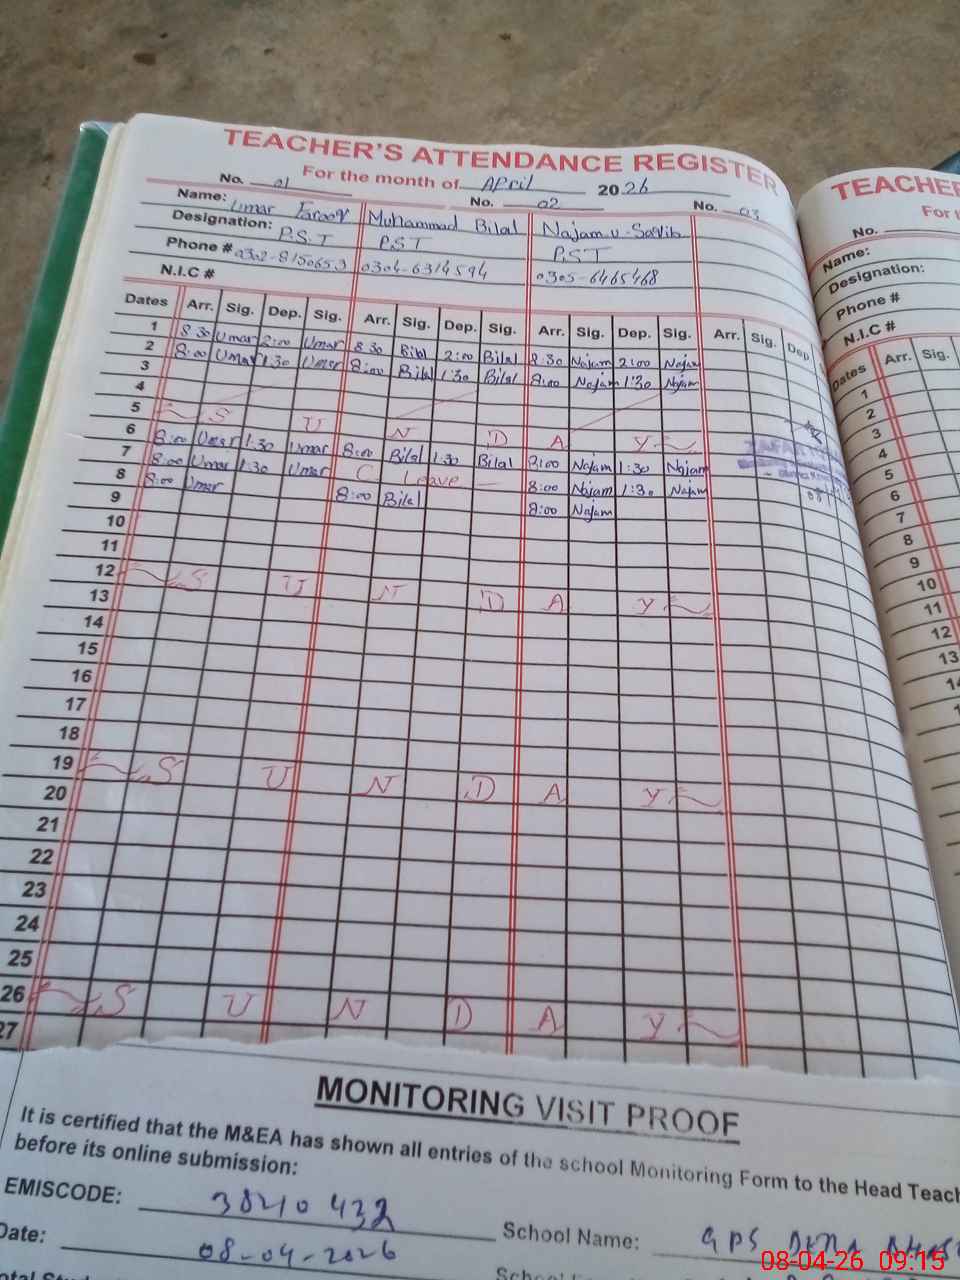 TEACHER'S ATTENDANCE REGISTER
For the month of April 2026
No. 01 No. 02 No. 03
Name: Umar Farooq Muhammad Bilal
Designation: P.S.T PST PST
Phone # 0302-8150653 0304-6314594 0305-6465468
N.I.C #
Dates Arr. Sig. Dep. Sig. Arr. Sig. Dep. Sig. Arr. Sig. Dep. Sig. Arr. Sig. Dep.
1 8:30 Umar 2:00 Umar 8:30 Bilal 2:00 Bilal 8:30 Najam 2:00 Najam
2 8:00 Umar 1:30 Umar 8:00 Bilal 1:30 Bilal 8:00 Najam 1:30 Najam
3
4
5 S U N D A Y
6 8:00 Umar 1:30 Umar 8:00 Bilal 1:30 Bilal 8:00 Najam 1:30 Najam
7 8:00 Umar 1:30 Umar C. Leave 8:00 Najam 1:30 Najam
8 8:00 Umar 8:00 Bilal 8:00 Najam
9
10
11
12 S U N D A Y
13
14
15
16
17
18
19 S U N D A Y
20
21
22
23
24
25
26 S U N D A Y
27
TEACHE
For t
No.
Name:
Designation:
Phone #
N.I.C #
Dates Arr. Sig.
1
2
3
4
5
6
7
8
9
10
11
12
13
MONITORING VISIT PROOF
It is certified that the M&EA has shown all entries of the school Monitoring Form to the Head Teach
before its online submission:
EMISCODE: 38210432
School Name: GPS
Date: 08-04-2026
08-04-26 09:15